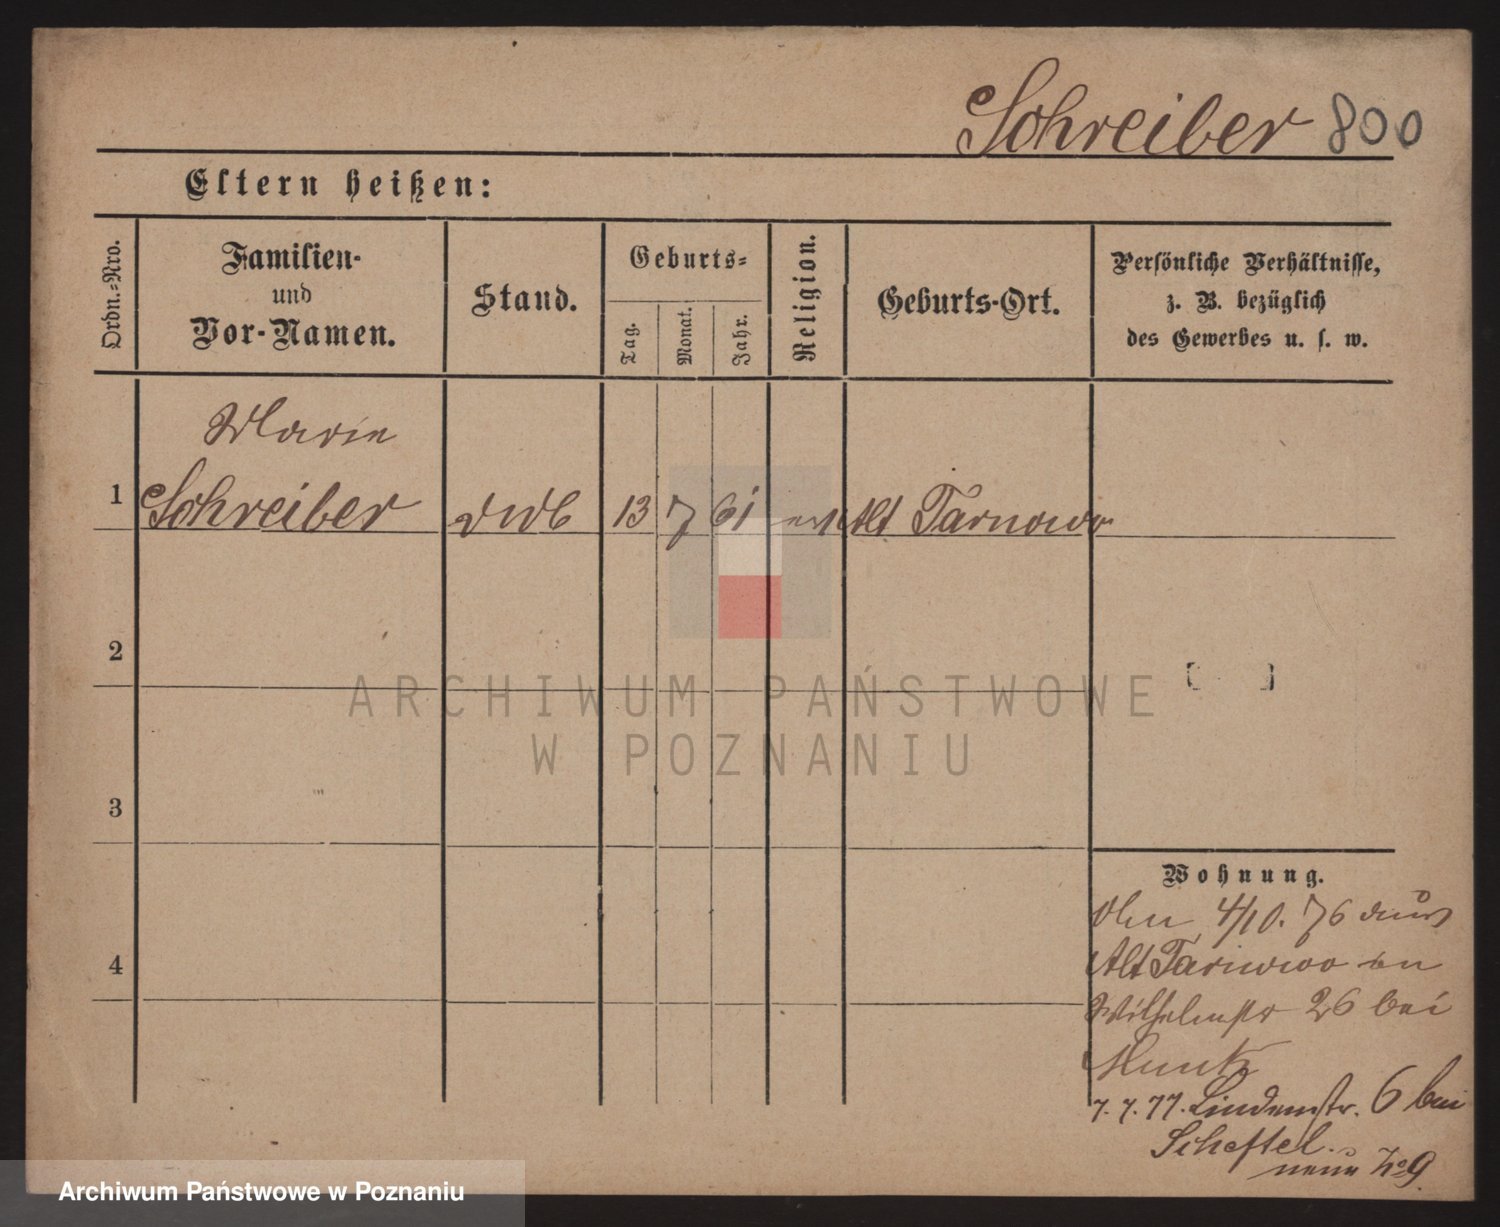 Schreiber 800
Eltern heißen:
Ordn.-Nro.
Familien-
und
Vor-Namen.
Stand.
Geburts-
Tag.
Monat.
Jahr.
Religion.
Geburts-Ort.
Persönliche Verhältnisse,
z. B. bezüglich
des Gewerbes u. s. w.
Marie
1 Schreiber 13 7 61 Alt Tarnowo
2
3
4
ARCHIWUM PAŃSTWOWE
W POZNANIU
Wohnung.
4/10. 76
Alt Tarnowo in
Wilhelmstr 26 bei
Munk
7. 7. 77. Lindenstr. 6 bei
Scheftel.
neue No 9.
Archiwum Państwowe w Poznaniu